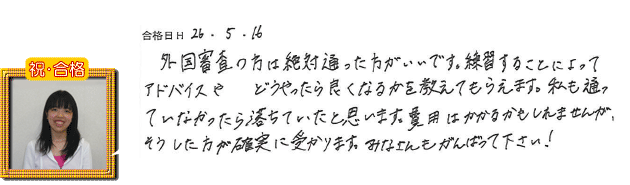 合格日H 26.5.16
祝・合格
外国審査の方は絶対通った方がいいです。練習することによって
アドバイスや どうやったら良くなるかを教えてもらえます。私も通っ
ていなかったら落ちていたと思います。費用はかかるかもしれませんが、
そうした方が確実に受かります。みなさんもがんばって下さい!